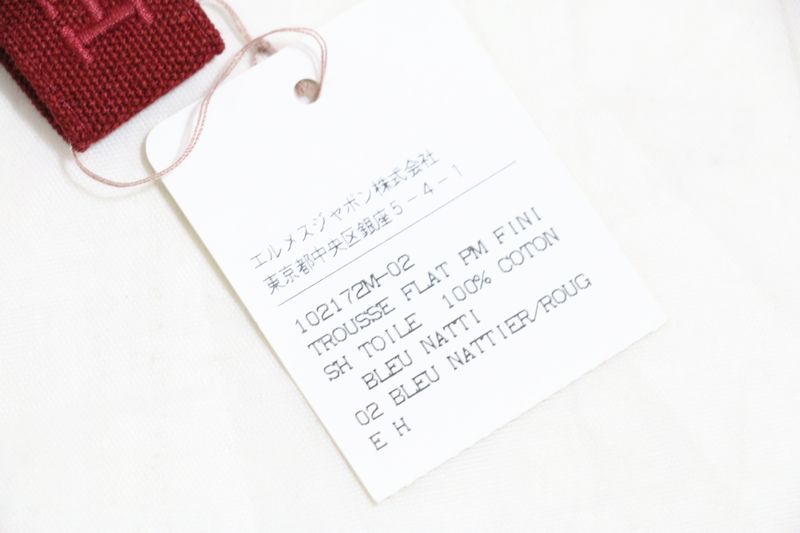 エルメスジャポン株式会社
東京都中央区銀座5-4-1
102172M-02
TROUSSE FLAT PM FINI
SH TOILE 100% COTON
BLEU NATTI
02 BLEU NATTIER/ROUG
E H